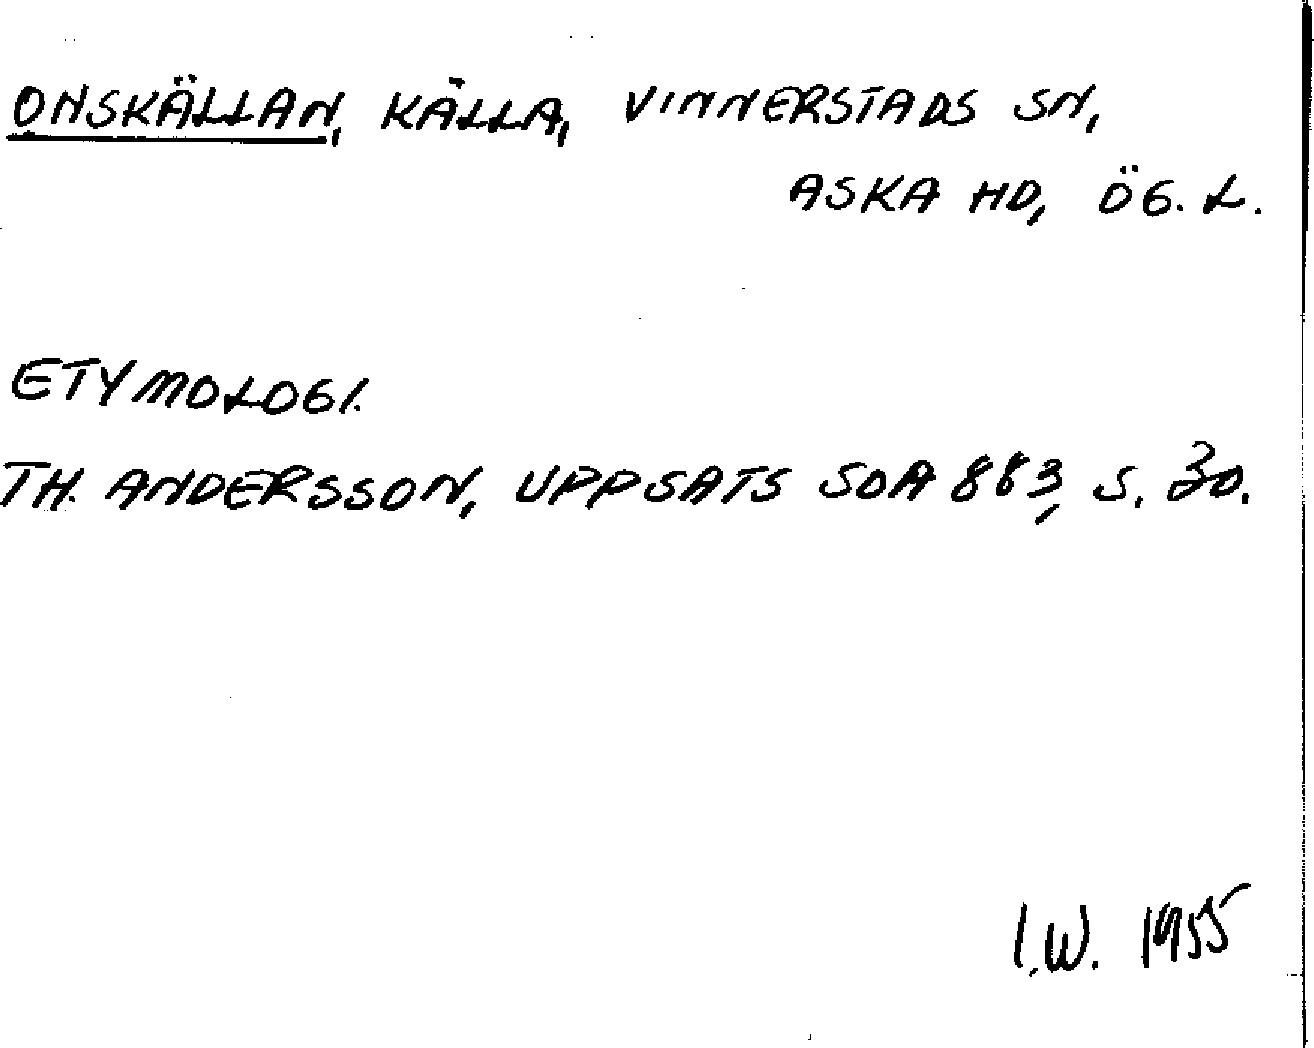 ONSKÄLLAN, KÄLLA, VINNERSTADS SN,
ASKA HD, ÖG. L.
ETYMOLOGI.
TH. ANDERSSON, UPPSATS SOA 883, S. 30.
I.W. 1955